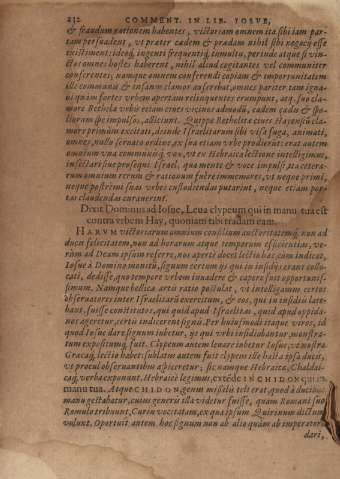 212 COMMENT. IN LIB. IOSVE,
& fraudum rationem habentes, victoriam omnem ita sibi iam par-
tam persuadent, vt prater cadem & prædam nihil sibi negocij esse
existiment: ideoq, ingenti frequentiq, tumultu, perinde atque si vin-
ctos omnes hostes haberent, nihil aliud cogitantes vel communiter
conferentes; namque omnem conferendi copiam & opportunitatem
ille communis & insanus clamor auferebat, omnes pariter tam igna-
ui quàm fortes vrbem apertam relinquentes erumpunt, atq, suo cla-
more Bethela vrbis etiam ciues vicinos admodū, eadem cædis & spo-
liorum spe impulsos, adsciunt. Quippe Bethelitæ ciues Hayensiū cla-
mors primùm excitati, deinde Israelitarum sibi visa fuga, animati,
omnes, nullo seruato ordine, ex sua etiam vrbe prodierūt: erat autem
omnium vna communisq, vox, vt ex Hebraica lectione intelligimus,
insectari siue prosequi Israel, qua mente & voce impulsi ita cetera-
rum omnium rerum & rationum fuêre immemores, vt neque primi,
neque postremi suas vrbes custodiendas putarint, neque etiam por-
tas claudendas curauerint.
Dixit Dominus ad Iosue, Leua clypeum qui in manu tua est
contra vrbem Hay, quoniam tibi tradam eam.
HARVM victoriarum omnium consilium auctoritatemq, non ad
ducis felicitatem, non ad horarum atque temporum efficientias, ve-
rùm ad Deum ipsum referre, nos apertè docet lectio hæc, cùm indicat,
Iosue à Domino moniti, signum certum ijs qui in insidijs erant collo-
cati, dedisse, quo tempore vrbem inuadere & capere foret opportunis-
simum. Namque bellica artis ratio postulat, vt intelligamus certos
obseruatores inter Israelitarū exercitum, & eos, qui in insidijs late-
bant, fuisse constitutos, qui quid apud Israelitas, quid apud oppida-
nos ageretur, certis indicarent signis. Per huiusmodi itaque viros, id
quod Iosue dare signum iubetur, ijs qui vrbi insidiabantur, monstra-
tum expositumq, fuit. Clypeum autem leuare iubetur Iosue, vt nostra
Græcaq, lectio habet: sublatus autem fuit clypeus ille hasta ipsa ducis,
vt procul obseruantibus aspiceretur; sic namque Hebraicè, Chaldai-
cæq, verba exponunt. Hebraicè legimus, extēde IN CHIDON qui in
manu tua. Atque CHIDON genus missilis teli erat, quod à ducibus
manu gestabatur, cuius generis illa videtur fuisse, quam Romani suo
Romulo tribuunt, Curim vocitatam, ex qua ipsum Quirinum dictum
volunt. Oportuit autem hoc signum non ab alio quàm ab imperatore
dari,